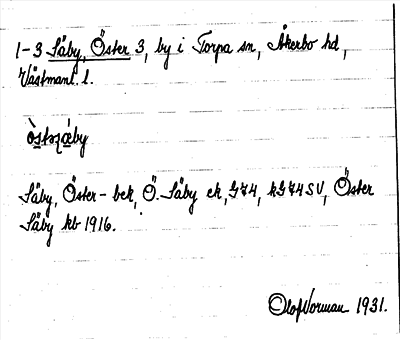 1-3 Säby, Öster 3, by i Torpa sn, Åkerbo hd,
Västmanl. l.
òstəʒáby
Säby, Öster - bek, Ö. Säby ek, G74, kG74SV, Öster
Säby kb 1916.
Olof Norman 1931.